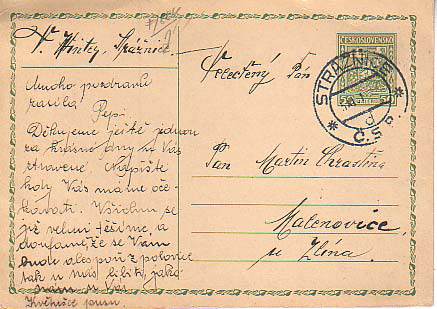 Fr. Hintey, Strážnice
Mnoho pozdravů
zasílá Pepi.
Děkujeme ještě jednou
za krásné dny u Vás
strávené. Napište
kdy Vás máme oče-
kávati. Všichni se
již velmi těšíme, a
doufáme, že se Vám
bude alespoň z polovice
tak u nás líbiti, jako
nám u Vás
ČESKOSLOVENSKO
STRÁŽNICE
Č.S.P.
Velectěný Pán
Pan Martin Chrastina
Malenovice
u Zlína.